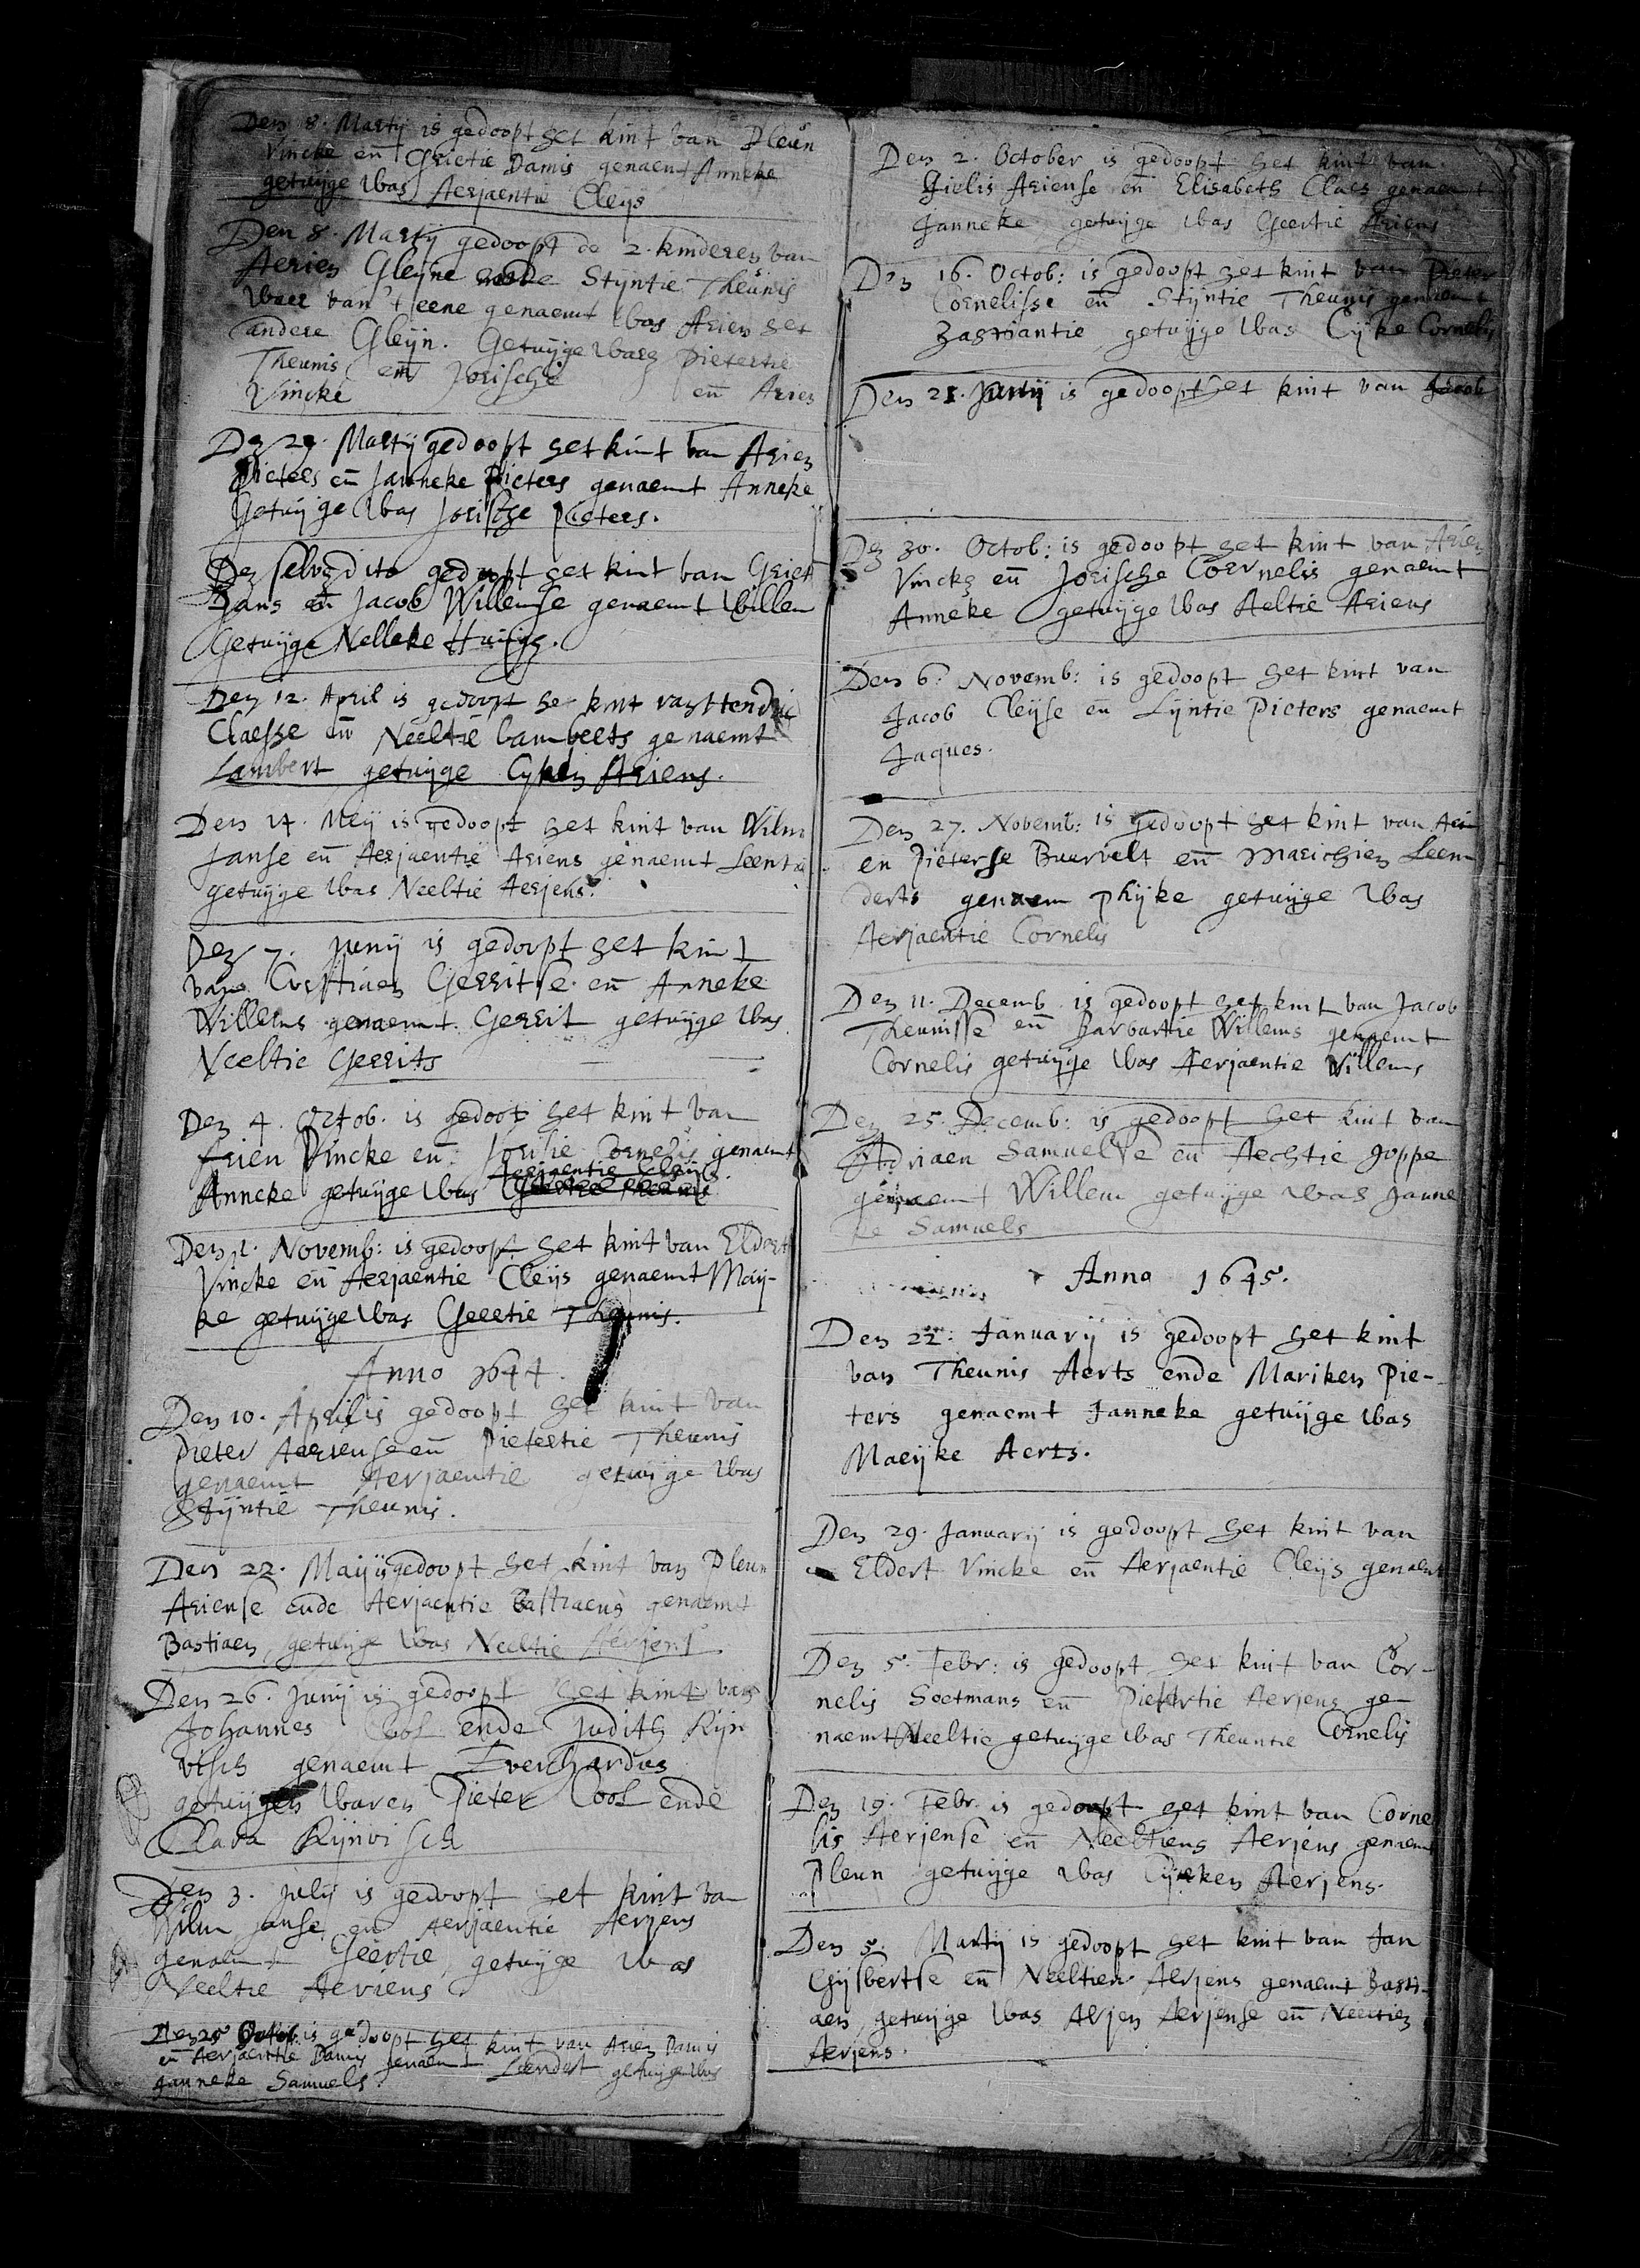 Den 8. Martij is gedoopt het kint van Pleun
Vincke en̄ Grietie Damis genaemt Anneke
getuijge was Aerjaentie Cleijs
Den 8. Martij gedoopt de 2. kinderen van
Aerien Gleijne ende Stijntie Theunis
waer van't eene genaemt was Arien het
andere Gleijn. Getuijge waren Pietertie
Theunis en̄ Jorische en̄ Arien
Vincke
Den 29. Martij gedoopt het kint van Arien
Pieters en̄ Janneke Pieters genaemt Anneke
Getuijge was Jorische Pieters.
Den selven dito gedoopt het kint van Griet
Hans en̄ Jacob Willemse genaemt Willem
Getuijge Nelleke Huijgs.
Den 12. April is gedoopt he kint van Hendric
Claesse en̄ Neeltie Lambeets genaemt
Lambert getuijge Cyken Ariens.
Den 14. Meij is gedoopt het kint van Wilm
Janse en̄ Aerjaentie Ariens genaemt
getuijge was Neeltie Aerjens.
Den 7. Junij is gedoopt het kint
van Corstiaen Gerritse en̄ Anneke
Willems genaemt Gerrit getuijge was
Neeltie Gerrits
Den 4. Octob. is gedoot het kint van
Arien Vincke en̄ Jorisie Cornelis genaemt
Aerjaentie Cleijs
Anneke getuijge was
Den 1. Novemb: is gedoopt het kint van Eldert
Vincke en̄ Aerjaentie Cleijs genaemt Maij-
ke getuijge was Geertie Theunis.
Anno 1644.
Den 10. April is gedoopt het kint van
Pieter Aeriense en̄ Pietertie Theunis
genaemt Aerjaentie getuijge was
Stijntie Theunis.
Den 22. Maij is gedoopt het kint van Pleun
Ariense ende Aerjaentie Bastiaens genaemt
Bastiaen, getuijge was Neeltie Aerjens
Den 26. Junij is gedoopt het kint van
Johannes Cool ende Judith Rijn
visch genaemt Everhardus
getuijgen waren Pieter Cool ende
Clara Rijnvisch
Den 3. Julij is gedoopt het kint van
Wilm Janse en̄ Aerjaentie Aerjens
genaemt Geertie, getuijge was
Neeltie Aeriens
Den 25 Octob. is gedoopt het kint van Arien Damis
en̄ Aerjaentie Damis genaemt Leendert getuijge was
Janneke Samuels.
Den 2. October is gedoopt het kint van
Gielis Ariense en̄ Elisabeth Claes genaemt
Janneke getuijge was Geertie Ariens
Den 16. Octob: is gedoopt het kint van Pieter
Cornelisse en̄ Stijntie Theunis genaemt
getuijge was Cijke Cornelis
Den 21. Junij is gedoopt het kint van Jacob
Den 30. Octob: is gedoopt het kint van Arien
Vincke en̄ Jorische Cornelis genaemt
Anneke getuijge was Aeltie Ariens
Den 6. Novemb: is gedoopt het kint van
Jacob Cleijse en Lijntie Pieters genaemt
Jaques.
Den 27. Novemb: is gedoopt het kint van Ari
en Pieterse Buervelt en̄ Marichien Leen
derts genaem Phijke getuijge was
Aerjaentie Cornelis
Den 11. Decemb. is gedoopt het kint van Jacob
Theunisse en̄ Barbartie Willems genaemt
Cornelis getuijge was Aerjaentie Willems
Den 25. Decemb: is gedoopt het kint van
Adriaen Samuelse en̄ Aechtie Joppe
genaemt Willem getuijge was Janne
ke Samuels
Anno 1645.
Den 22. Januarij is gedoopt het kint
van Theunis Aerts ende Mariken Pie-
ters genaemt Janneke getuijge was
Maeijke Aerts.
Den 29. Januarij is gedoopt het kint van
Eldert Vincke en̄ Aerjaentie Cleijs genaemt
Den 5. Febr: is gedoopt het kint van Cor-
nelis Soetmans en̄ Pietertie Aerjens ge-
naemt Neeltie getuijge was Theuntie Cornelis
Den 19. Febr. is gedoopt het kint van Corne
lis Aerjense en̄ Neeltiens Aerjens genaemt
Pleun getuijge was Cijken Aerjens.
Den 5. Martij is gedoopt het kint van Jan
Gijsbertse en̄ Neeltien Aerjens genaemt Basti-
aen, getuijge was Arjen Aerjense en̄ Neeltien
Aerjens.